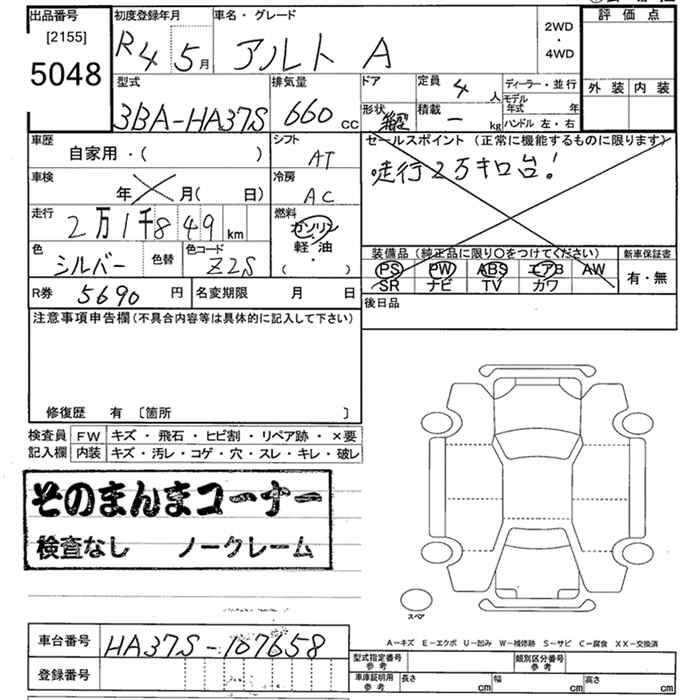 出品番号 初度登録年月 車名・グレード 2WD ・ 4WD 評価点
[2155]
5048 R4 5月 アルト A
外装 内装
型式 排気量 ドア 定員 4人 ディーラー・並行
3BA-HA37S 660cc 形状 積載 - kg モデル年式 年
ハンドル 左・右
車歴 シフト セールスポイント (正常に機能するものに限ります)
自家用・( ) AT 走行2万キロ台!
車検 冷房
年 月( 日) AC
走行 燃料
2万1千849km ガソリン
軽油
( ・ )
色 色替 色コード 装備品 (純正品に限り○をつけてください) 新車保証書
シルバー Z2S PS PW ABS エアB AW 有・無
SR ナビ TV カワ
R券 5690円 名変期限 月 日 後日品
注意事項申告欄(不具合内容等は具体的に記入して下さい)
修復歴 有 〔箇所 〕
検査員 FW キズ・飛石・ヒビ割・リペア跡・×要
記入欄 内装 キズ・汚レ・コゲ・穴・スレ・キレ・破レ
そのまんまコーナー
検査なし ノークレーム
スペア
車台番号 HA37S-107658
A-キズ E-エクボ U-凹み W-補修跡 S-サビ C-腐食 XX-交換済
登録番号
型式指定番号 参考 類別区分番号 参考
車庫証明用 参考 長さ cm 幅 cm 高さ cm